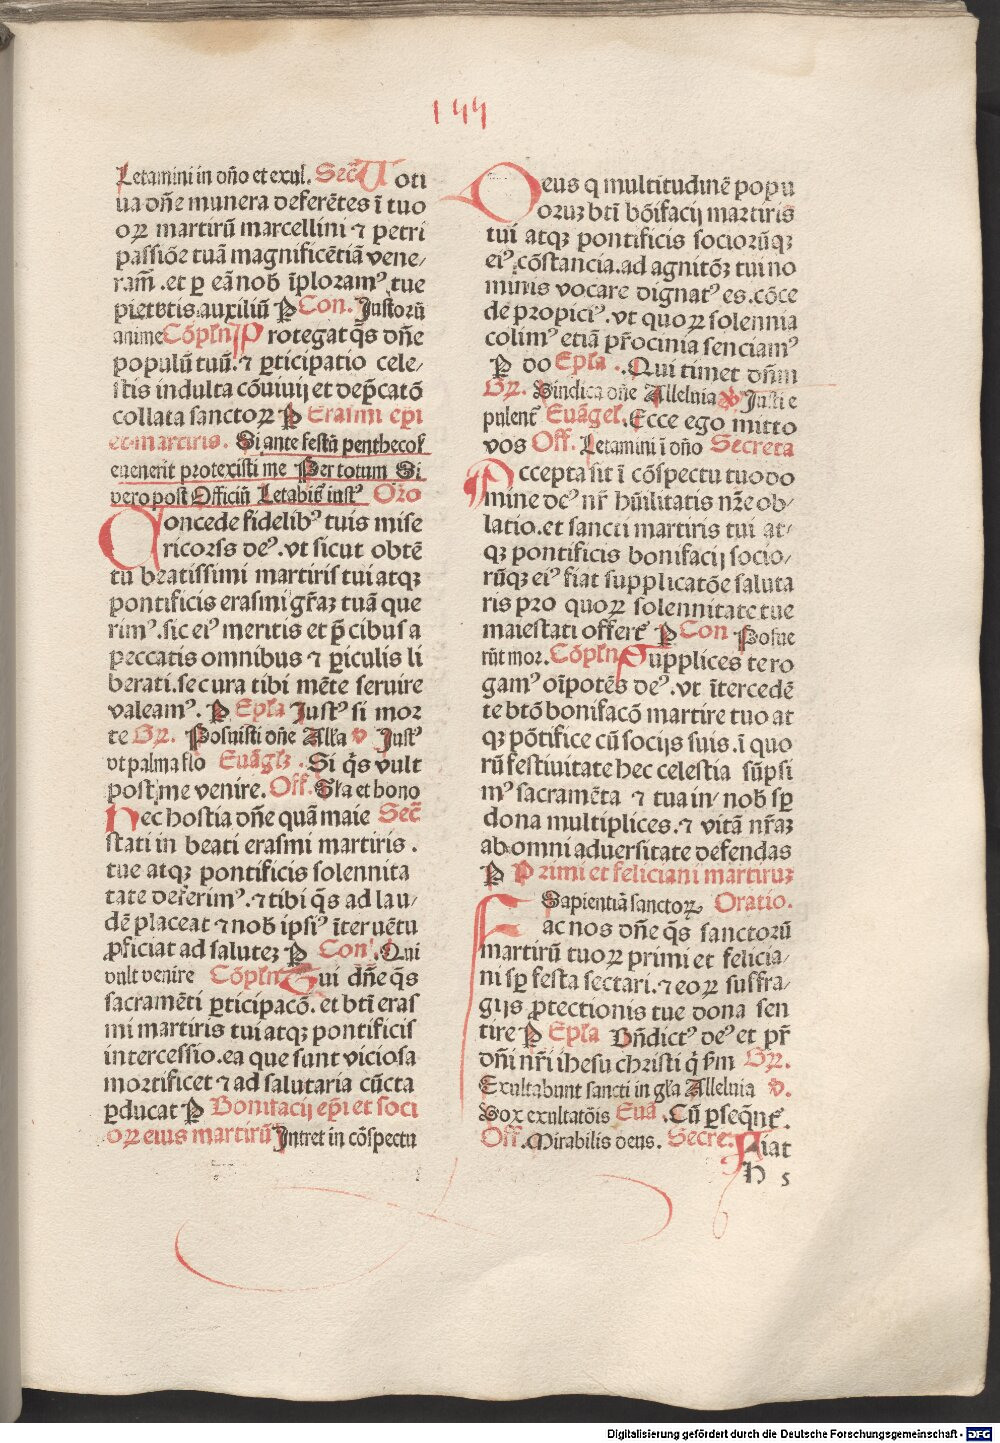 144
Letamini in dño et exul. Sec̄ Uoti
ua dñe munera deferētes ī tuo
oꝝ martirū marcellini ⁊ petri
passiōe tuā magnificētiā vene/
ram̄ .et ꝑ eā nob̄ īploramꝰ tue
pietatis auxiliū P Con. Justorū
anime Cōpln̄ Protegat q̄s dñe
populū tuū.⁊ ꝑticipatio cele/
stis indulta cōuiuij et dep̄catō
collata sanctoꝝ P Erasmi ep̄i
et martiris. Si ante festū penthecoſ
euenerit protexisti me Per totum Si
vero post Officiū Letabit᷑ iustꝰ Oro
Concede fidelibꝰ tuis mise
ricors deꝰ.vt sicut obtē
tu beatissimi martiris tui atqꝫ
pontificis erasmi gr̄aꝫ tuā que
rimꝰ.sic eiꝰ meritis et p̄cibus a
peccatis omnibus ⁊ ꝑiculis li
berati.secura tibi mēte seruire
valeamꝰ. P Epl̄a Justꝰ si mor
te Gꝝ. Posuisti dñe All̄a v Justꝰ
vt palma flo Euāgl̄ꝫ . Si q̄s vult
post me venire. Off. Gl̄a et hono
Hec hostia dñe quā maie Sec̄
stati in beati erasmi martiris .
tue atqꝫ pontificis solennita
tate deferimꝰ.⁊ tibi q̄s ad lau/
dē placeat ⁊ nob̄ ipsiꝰ īteruētu
ꝓficiat ad saluteꝫ P Con̄ .Qui
vult venire Cōpln̄ Sui dn̄e q̄s
sacramēti ꝑticipacō. et btī eras
mi martiris tui atqꝫ pontificis
intercessio.ea que sunt viciosa
mortificet ⁊ ad salutaria cūcta
ꝑducat P Bonifacij ep̄i et soci
oꝝ eius martirū Intret in cōspectu
Deus q multitudinē popu
oruꝫ btī bōifacij martiris
tui atqꝫ pontificis sociorūqꝫ
eiꝰ.cōstancia.ad agnitōꝫ tui no
minis vocare dignatꝰ es.cōce
de propiciꝰ.vt quoꝝ solennia
colimꝰ etiā pr̄ocinia senciamꝰ
P do Epl̄a . .Qui timet dn̄m
Gꝝ. Vindica dñe Alleluia v Justi e
pulent᷑ Euāgel̄. Ecce ego mitto
vos Off. Letamini ī dño Secreta
Accepta sit ī cōspectu tuo do
mine deꝰ nr̄ hūilitatis nr̄e ob/
latio.et sancti martiris tui at/
qꝫ pontificis bonifacij socio/
rūqꝫ eiꝰ fiat supplicatōe saluta
ris pro quoꝝ solennitate tue
maiestati offert᷑ P Con Posue
rūt mor. Cōpln̄ Supplices te ro
gamꝰ oīpotēs deꝰ.vt ītercedē
te btō bonifacō martire tuo at
qꝫ pōtifice cū socijs suis.ī quo
rū festiuitate hec celestia sūpsi
mꝰ sacramēta ⁊ tua in/ nob̄ sꝑ
dona multiplices.⁊ vitā nr̄aꝫ
ab omni aduersitate defendas
P Primi et feliciani martiruꝫ
Sapientiā sanctoꝝ Oratio.
Fac nos dñe q̄s sanctorū
martirū tuoꝝ primi et felicia/
ni sꝑ festa sectari.⁊ eoꝝ suffra/
gijs ꝓtectionis tue dona sen
tire P Epl̄a Bn̄dictꝰ deꝰ et pr̄
dn̄i nr̄i ihesu christi q̄ ẜm Gꝝ.
Exultabunt sancti in gl̄a Alleluia v.
Vox exultatōis Euā .Cū ꝑseqn̄t᷑.
Off. Mirabilis deus. Secre: Fiat
H 5
Digitalisierung gefördert durch die Deutsche Forschungsgemeinschaft - DFG